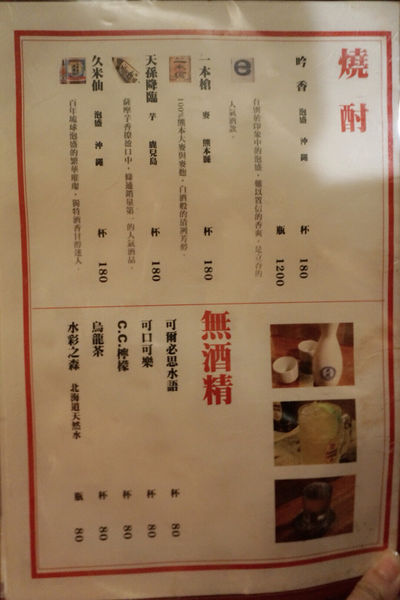 燒酎
吟香 泡盛 沖繩 杯 180
瓶 1200
有別於印象中的泡盛，難以置信的香爽，是立吞的
人氣酒款。
一本槍 麥 熊本縣 杯 180
100%熊本大麥與麥麴，白酒般的清冽芳醇。
天孫降臨 芋 鹿兒島 杯 180
薩摩芋香撩遊口中，條通銷量第一的人氣酒品。
久米仙 泡盛 沖繩 杯 180
百年琉球泡盛的繁華璀璨，獨特酒香甘醇迷人。
無酒精
可爾必思水語 杯 80
可口可樂 杯 80
C.C.檸檬 杯 80
烏龍茶 杯 80
水彩之森 北海道天然水 瓶 80